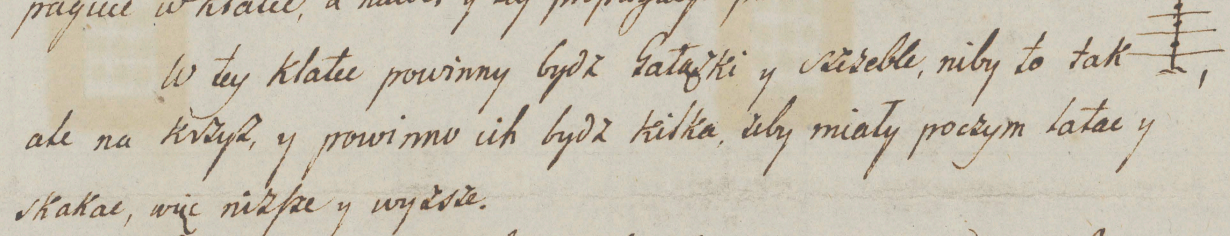 w klatce, a nawet y
W tey klatce powinny bydz Gałązki y szczeble, niby to tak ,
ale na krzyz, y powinno ich bydz kilka, żeby miały poczym latac y
skakac, więc niższe y wyższe.